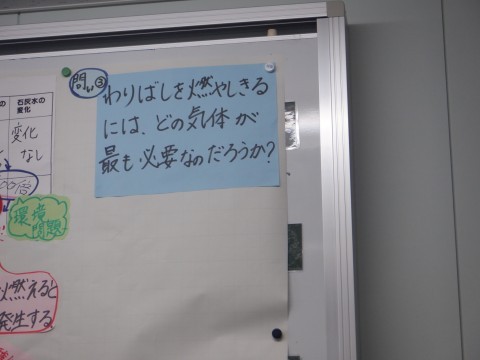 問い③
わりばしを燃やしきる
には、どの気体が
最も必要なのだろうか?
の
石灰水の
変化
変化
なし
環境
問題
燃えると
発生する